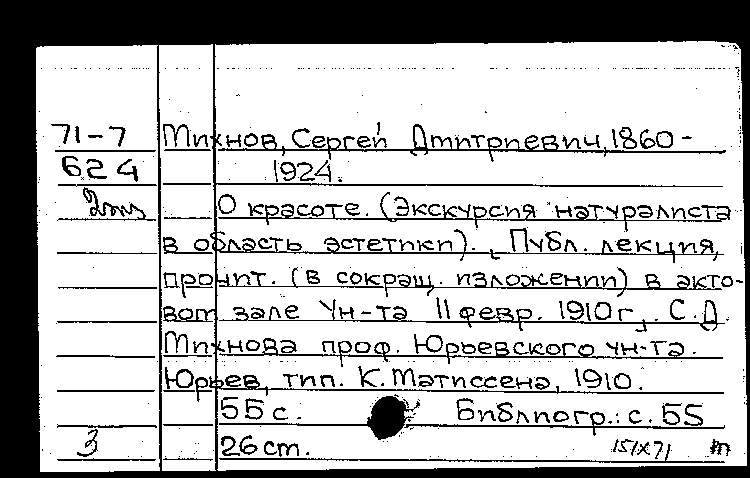 71-7 Михнов, Сергей Дмитриевич, 1860-
624 1924.
2экз О красоте. (Экскурсия натуралиста
в область эстетики). Публ. лекция,
прочит. (в сокращ. изложении) в акто-
вом зале Ун-та 11 февр. 1910 г. С.Д.
Михнова проф. Юрьевского ун-та.
Юрьев, тип. К. Матиссена, 1910.
55 с. Библиогр.: с. 55
3 26 см. 15/IX 71 т